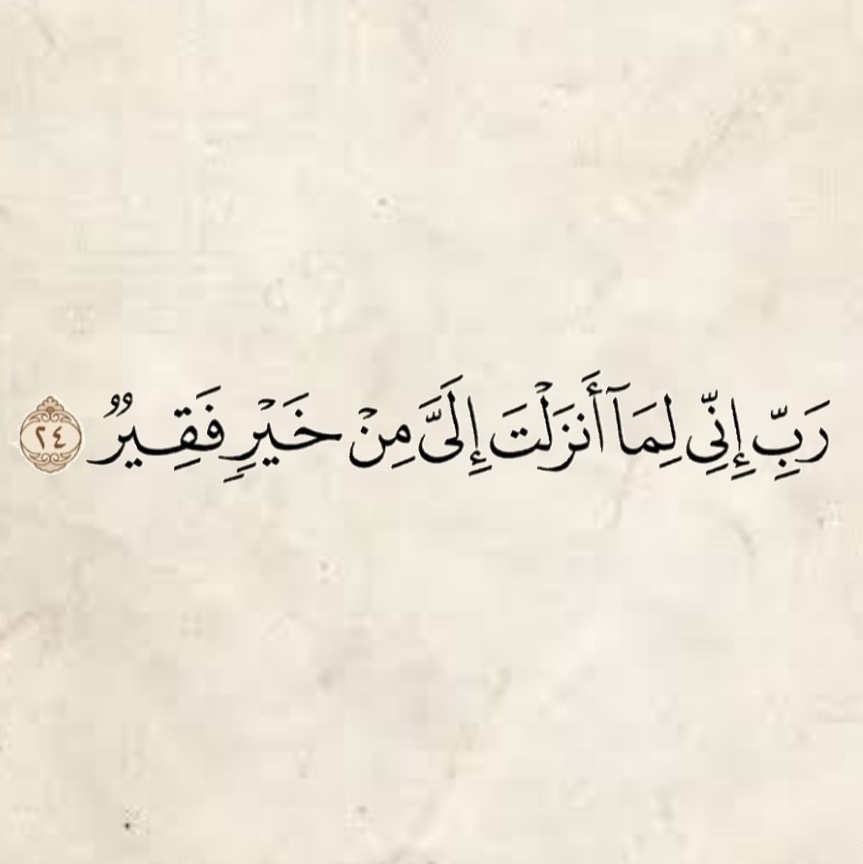 رَبِّ إِنِّي لِمَآ أَنزَلۡتَ إِلَيَّ مِنۡ خَيۡرٖ فَقِيرٞ ٢٤